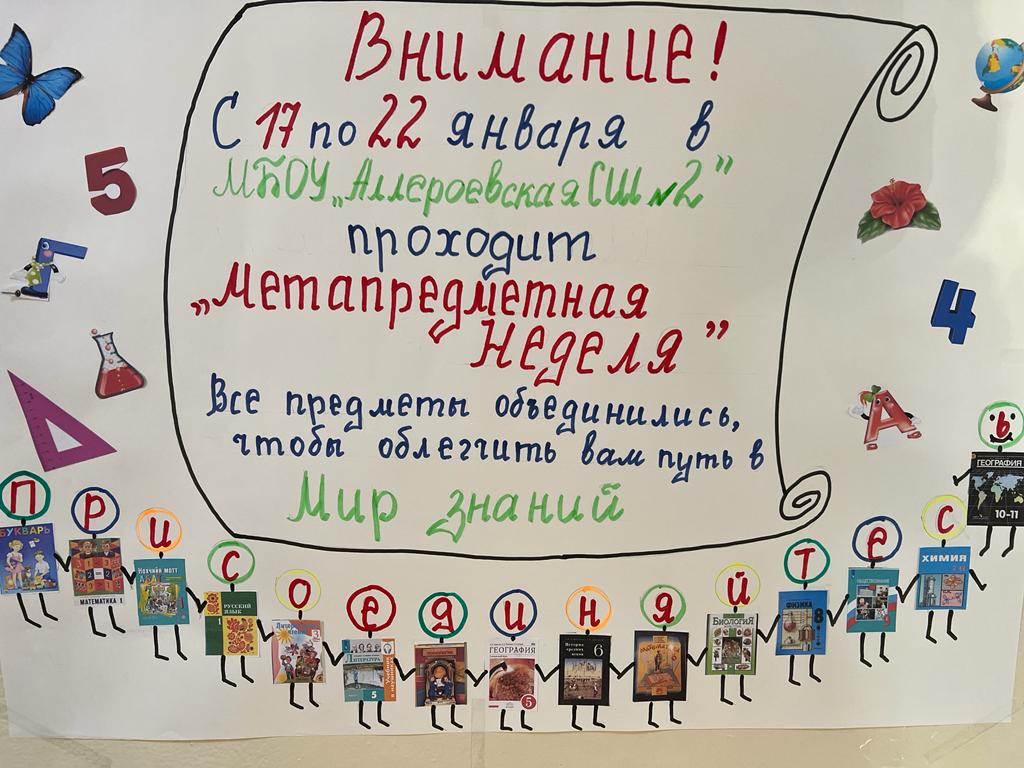 Внимание!
С 17 по 22 января в
МБОУ „Аллероевская СШ №2”
проходит
„Метапредметная
Неделя”
Все предметы объединились,
чтобы облегчить вам путь в
Мир знаний
5
Г
4
А
Присоединяйтесь
БУКВАРЬ
МАТЕМАТИКА 1
Нохчийн мотт
РУССКИЙ
ЯЗЫК
1
3
ЛИТЕРАТУРА
5
ГЕОГРАФИЯ
5
6
БИОЛОГИЯ
ФИЗИКА
8
ОБЩЕСТВОЗНАНИЕ
ХИМИЯ
ГЕОГРАФИЯ
10-11